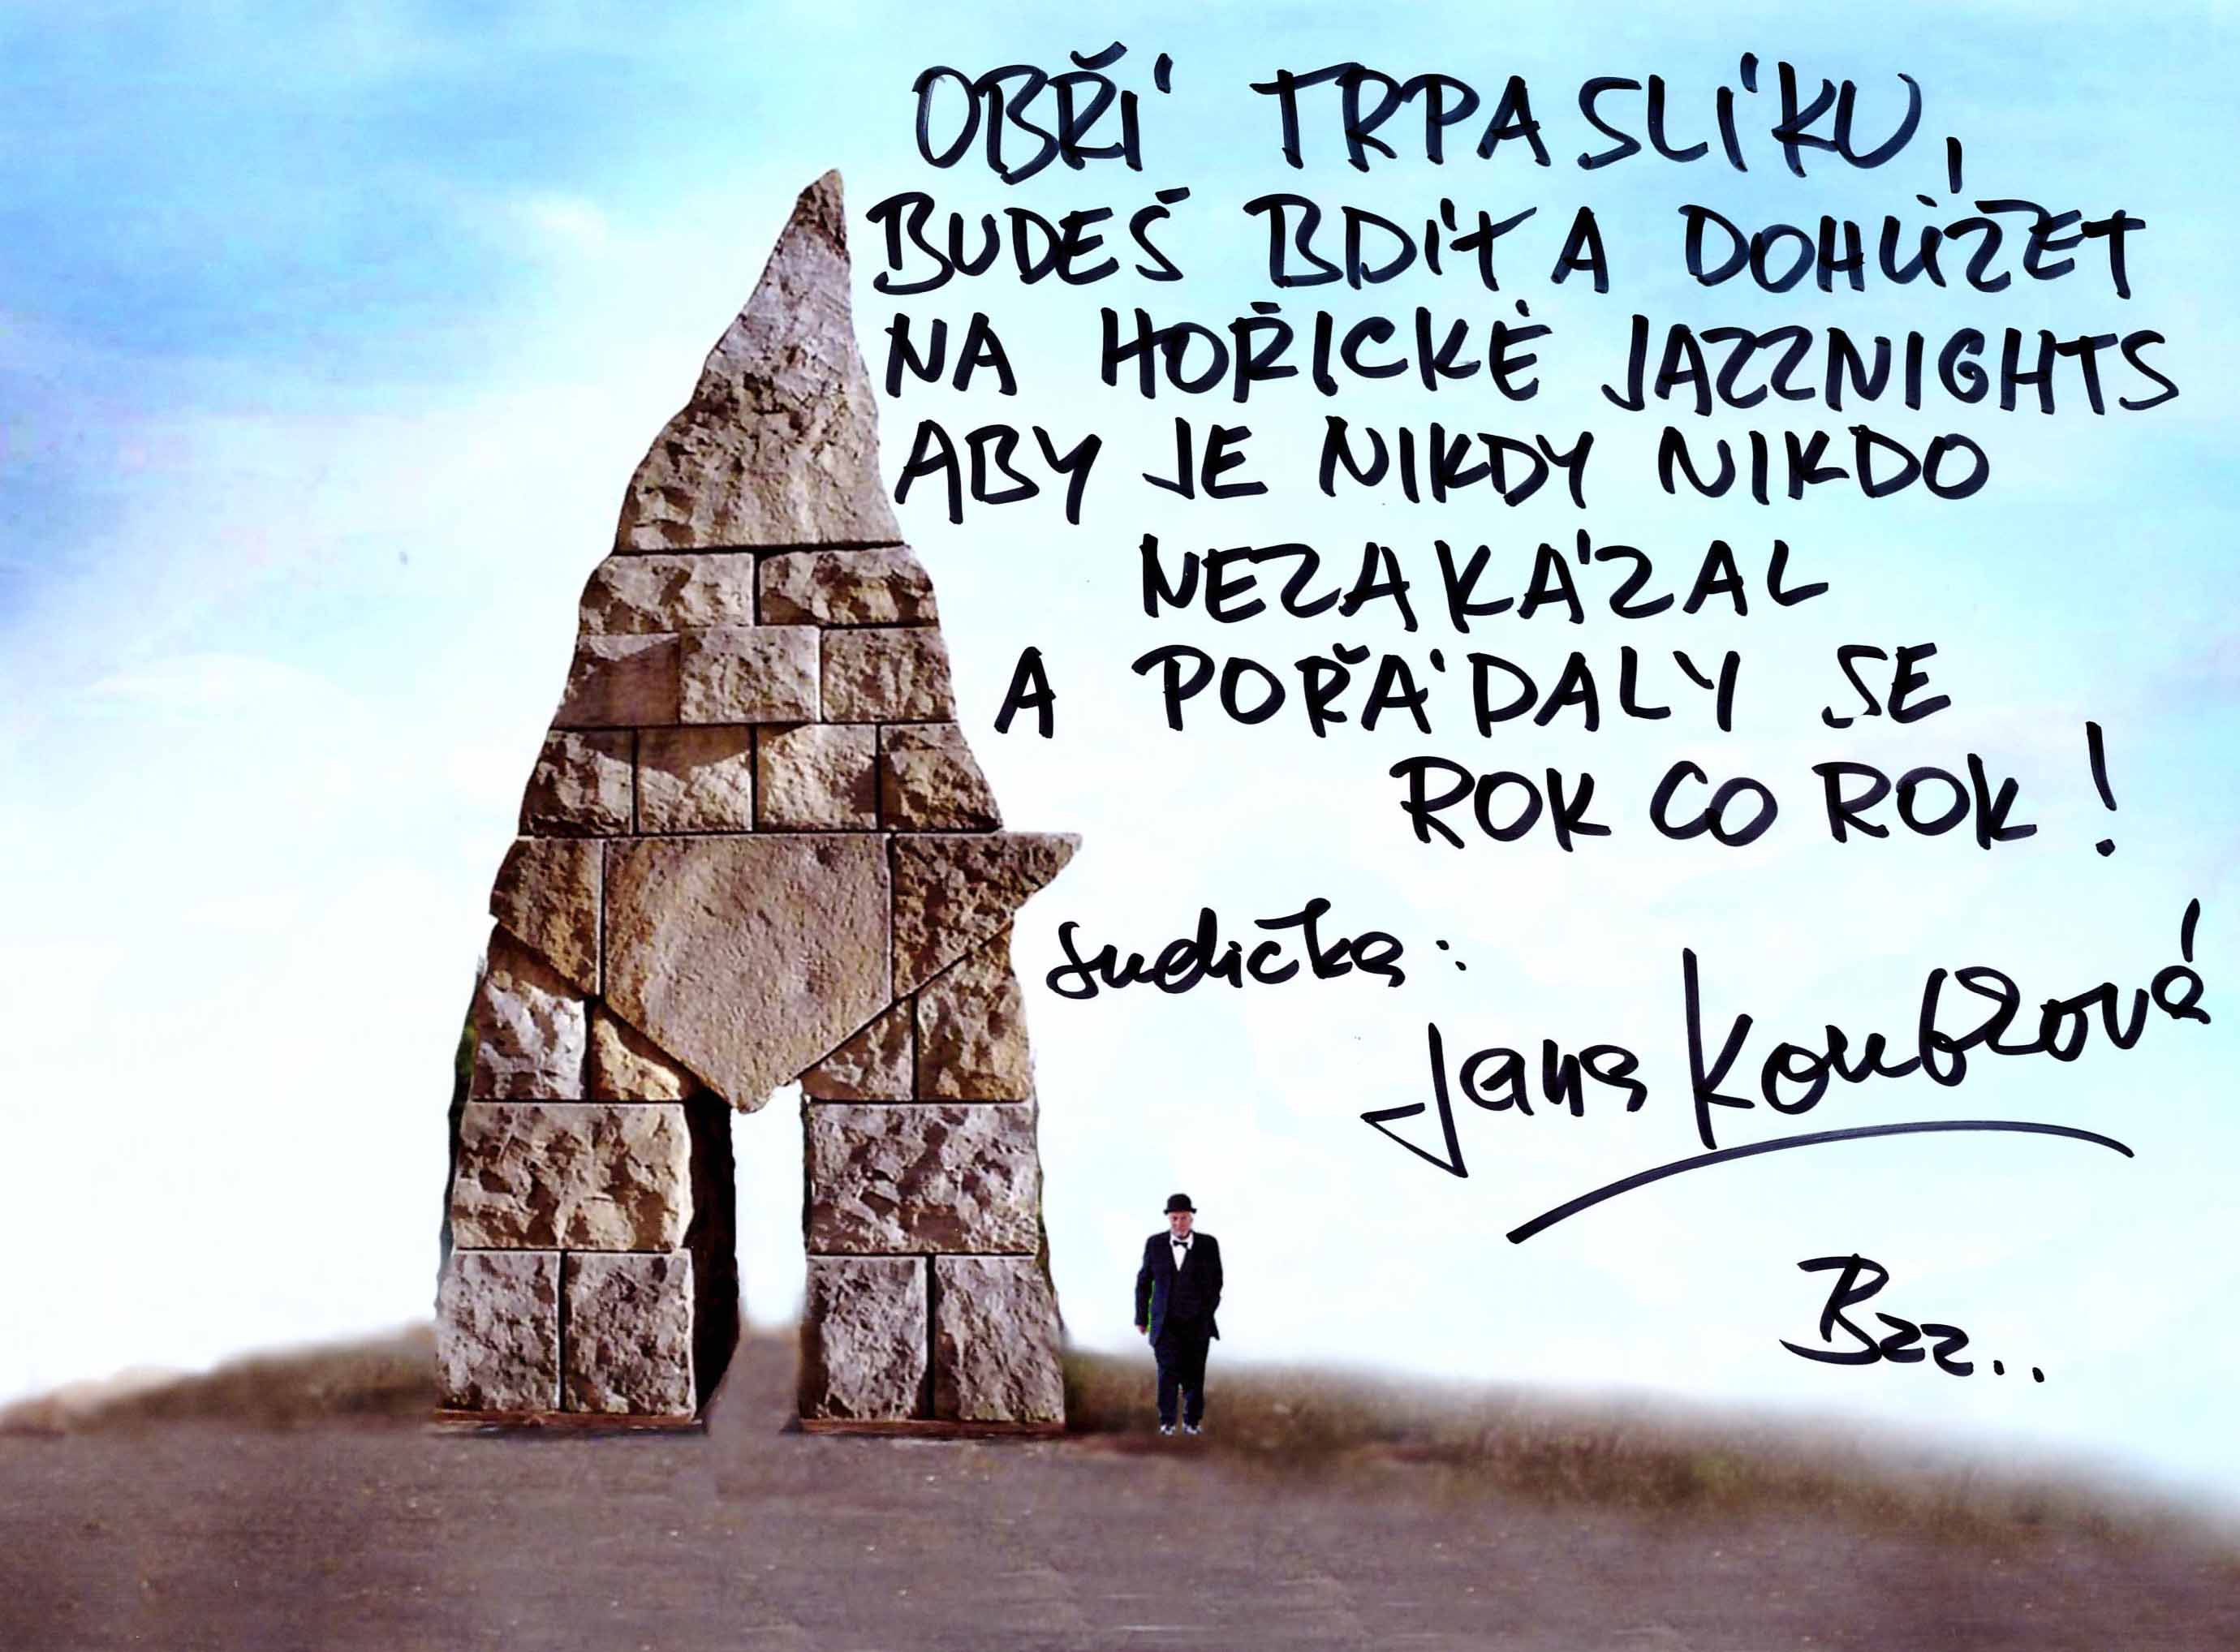 OBŘÍ TRPASLÍKU,
BUDEŠ BDÍT A DOHLÍŽET
NA HOŘICKÉ JAZZNIGHTS
ABY JE NIKDY NIKDO
NEZAKÁZAL
A POŘÁDALY SE
ROK CO ROK!
sudička:
Jana Koubková
Bzz..